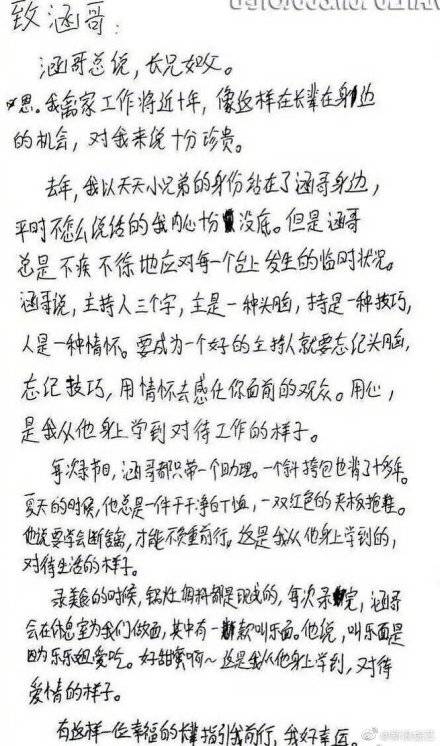 致涵哥：
涵哥总说，长兄如父。
思。我离家工作将近十年，像这样在长辈在身边
的机会，对我来说十分珍贵。
去年，我以天天小兄弟的身份站在了涵哥身边，
平时不怎么说话的我内心十分没底。但是涵哥
总是不疾不徐地应对每一个台上发生的临时状况。
涵哥说，主持人三个字，主是一种头脑，持是一种技巧，
人是一种情怀。要成为一个好的主持人就要忘记头脑，
忘记技巧，用情怀去感任你面前的观众。用心，
是我从他身上学到对待工作的样子。
每次录节目，涵哥都只带一个助理。一个斜挎包也背了十多年。
夏天的时候，他总是一件干干净白T恤，一双红色的夹板拖鞋。
他说要学会断舍离，才能不负重前行。这是我从他身上学到的，
对待生活的样子。
录美食的时候，锅灶调料都是现成的，每次录完，涵哥
会在休息室为我们做面，其中有一款叫乐面。他说，叫乐面是
因为乐乐姐爱吃。好甜蜜啊～这是我从他身上学到，对待
爱情的样子。
有这样一位幸福的长辈指引我前行，我好幸运。